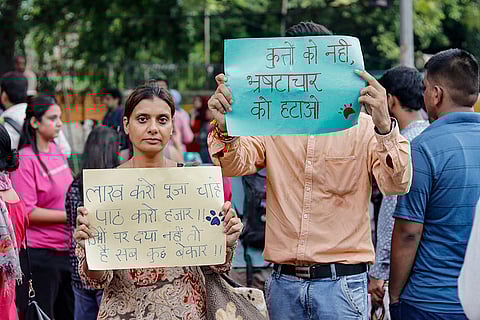 कुत्तों को नहीं,
भ्रष्टाचार
को हटाओ
लाख करो पूजा चाहे
पाठ करो हजार।।
पर दया नहीं तो
है सब कुछ बेकार।।